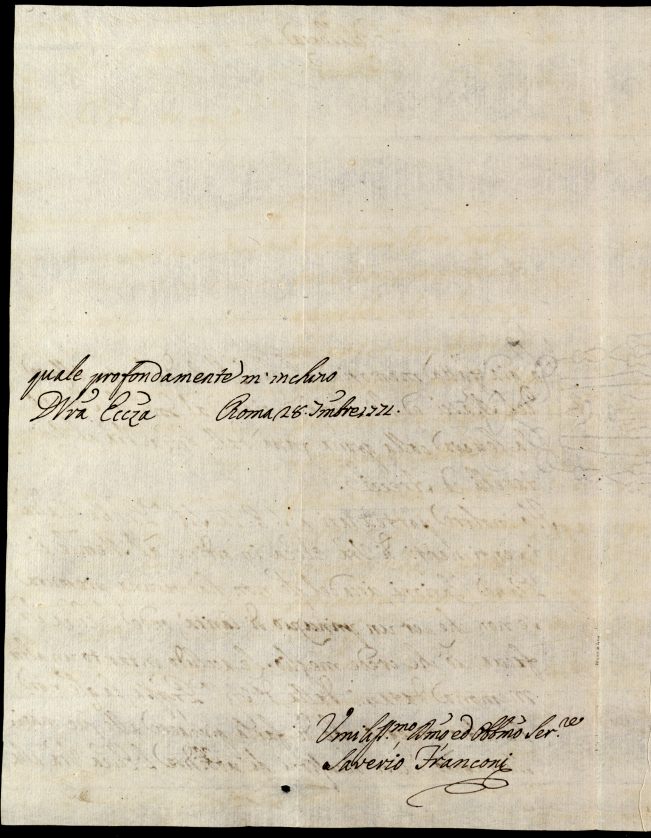 quale profondamente m'inchino
D Vrā Eccza Roma 28. 7mbre 1771.
Umiliss.mo Dmo ed Obbmo Ser.re
Saverio Franconi